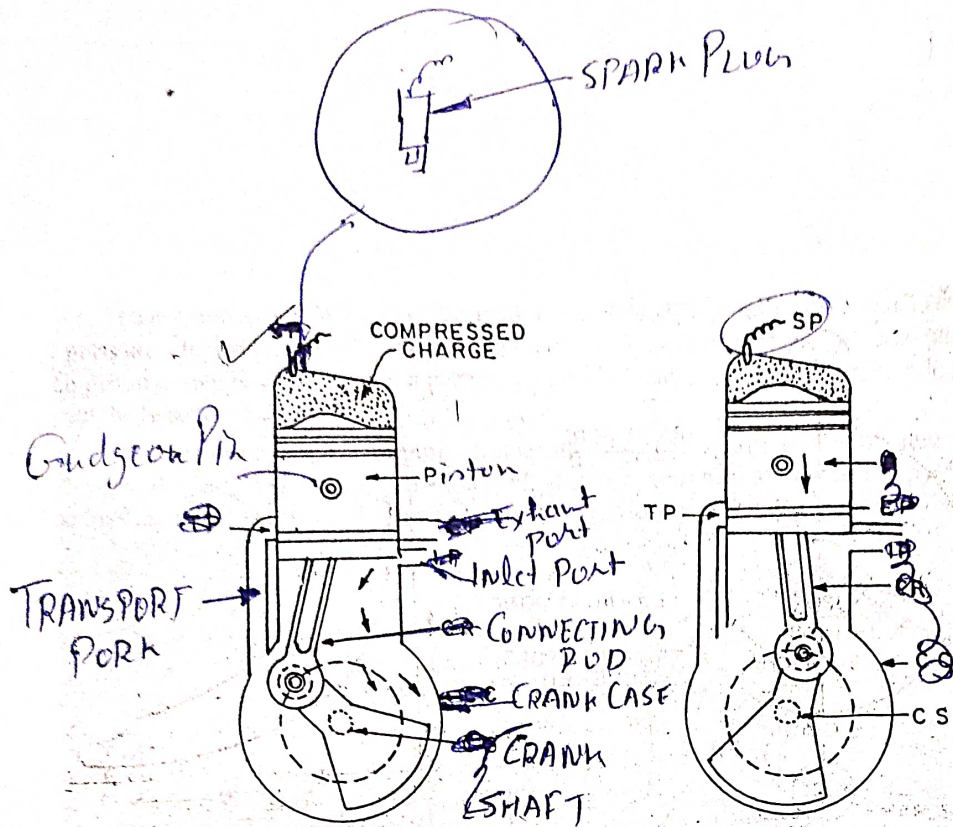 SPARK PLUG
COMPRESSED
CHARGE
SP
Gudgeon Pin
Piston
Exhaust
Port
Inlet Port
TP
TRANSPORT
PORK
CONNECTING
ROD
CRANK CASE
CS
CRANK
SHAFT